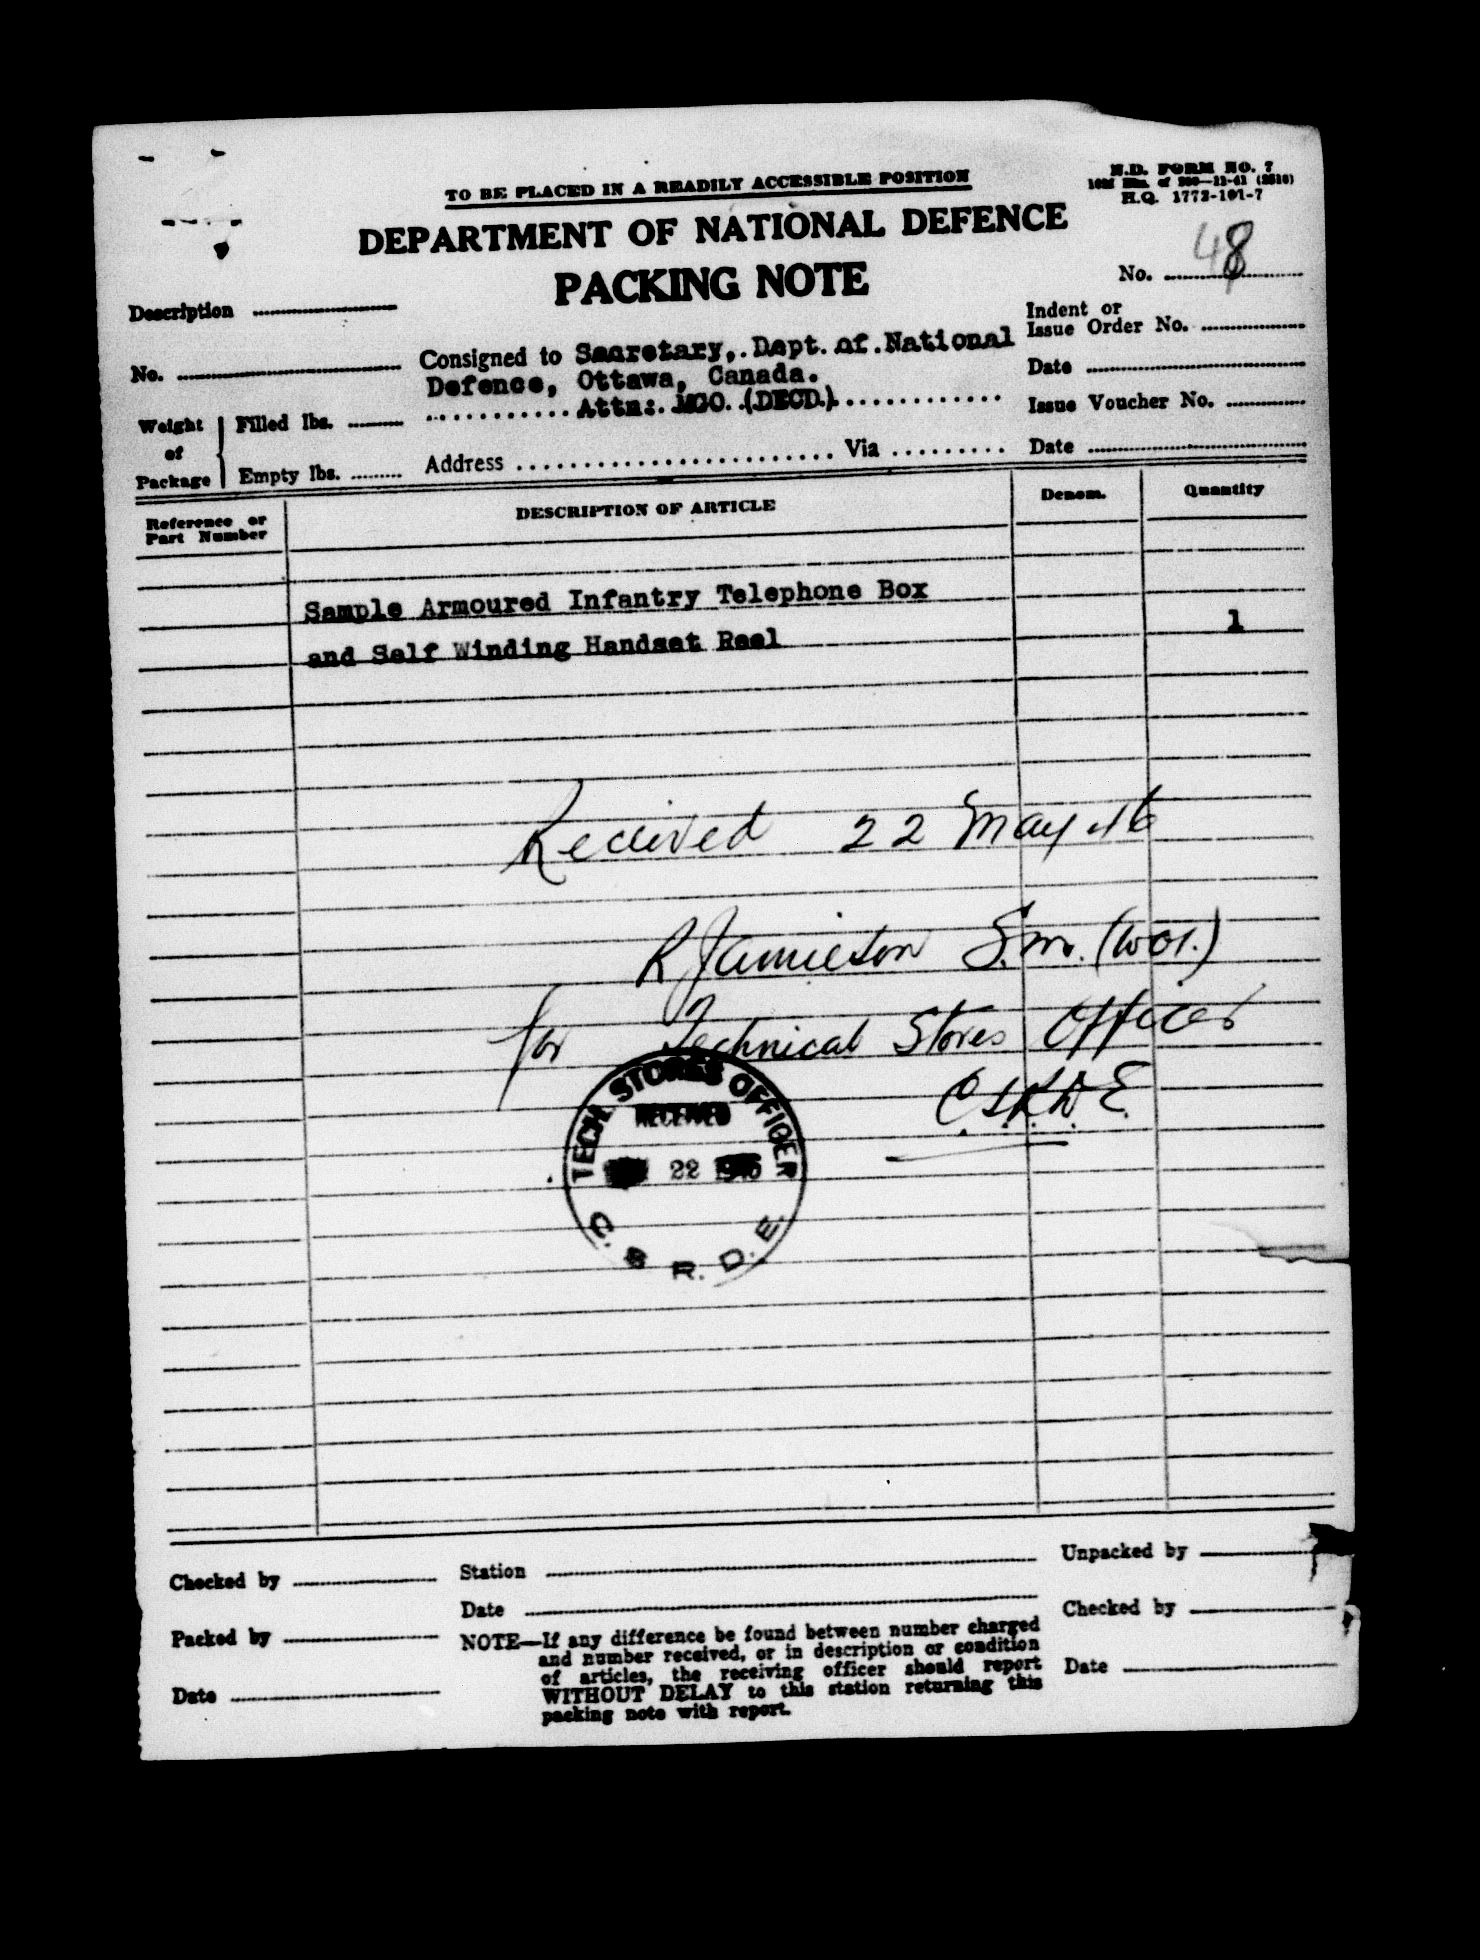 TO BE PLACED IN A READILY ACCESSIBLE POSITION
N.D. FORM NO. 7
H.Q. 1772-101-7
DEPARTMENT OF NATIONAL DEFENCE
PACKING NOTE
No. 48
Description
Indent or
Issue Order No.
No.
Consigned to Secretary, Dept. of National
Defence, Ottawa, Canada.
Attn: MGO (DECD.)
Date
Issue Voucher No.
Weight of Package
Filled lbs.
Empty lbs.
Address Via
Date
Reference or
Part Number
DESCRIPTION OF ARTICLE
Denom.
Quantity
Sample Armoured Infantry Telephone Box
and Self Winding Handset Reel 1
Received 22 May 46
R Jamieson S.M. (WO1.)
for Technical Stores Officer
C.S.R.D.E.
TECH STORES OFFICER
RECEIVED
22
C. S. R. D. E.
Checked by
Station
Unpacked by
Date
Checked by
Packed by
NOTE—If any difference be found between number charged
and number received, or in description or condition
of articles, the receiving officer should report
WITHOUT DELAY to this station returning this
packing note with report.
Date
Date